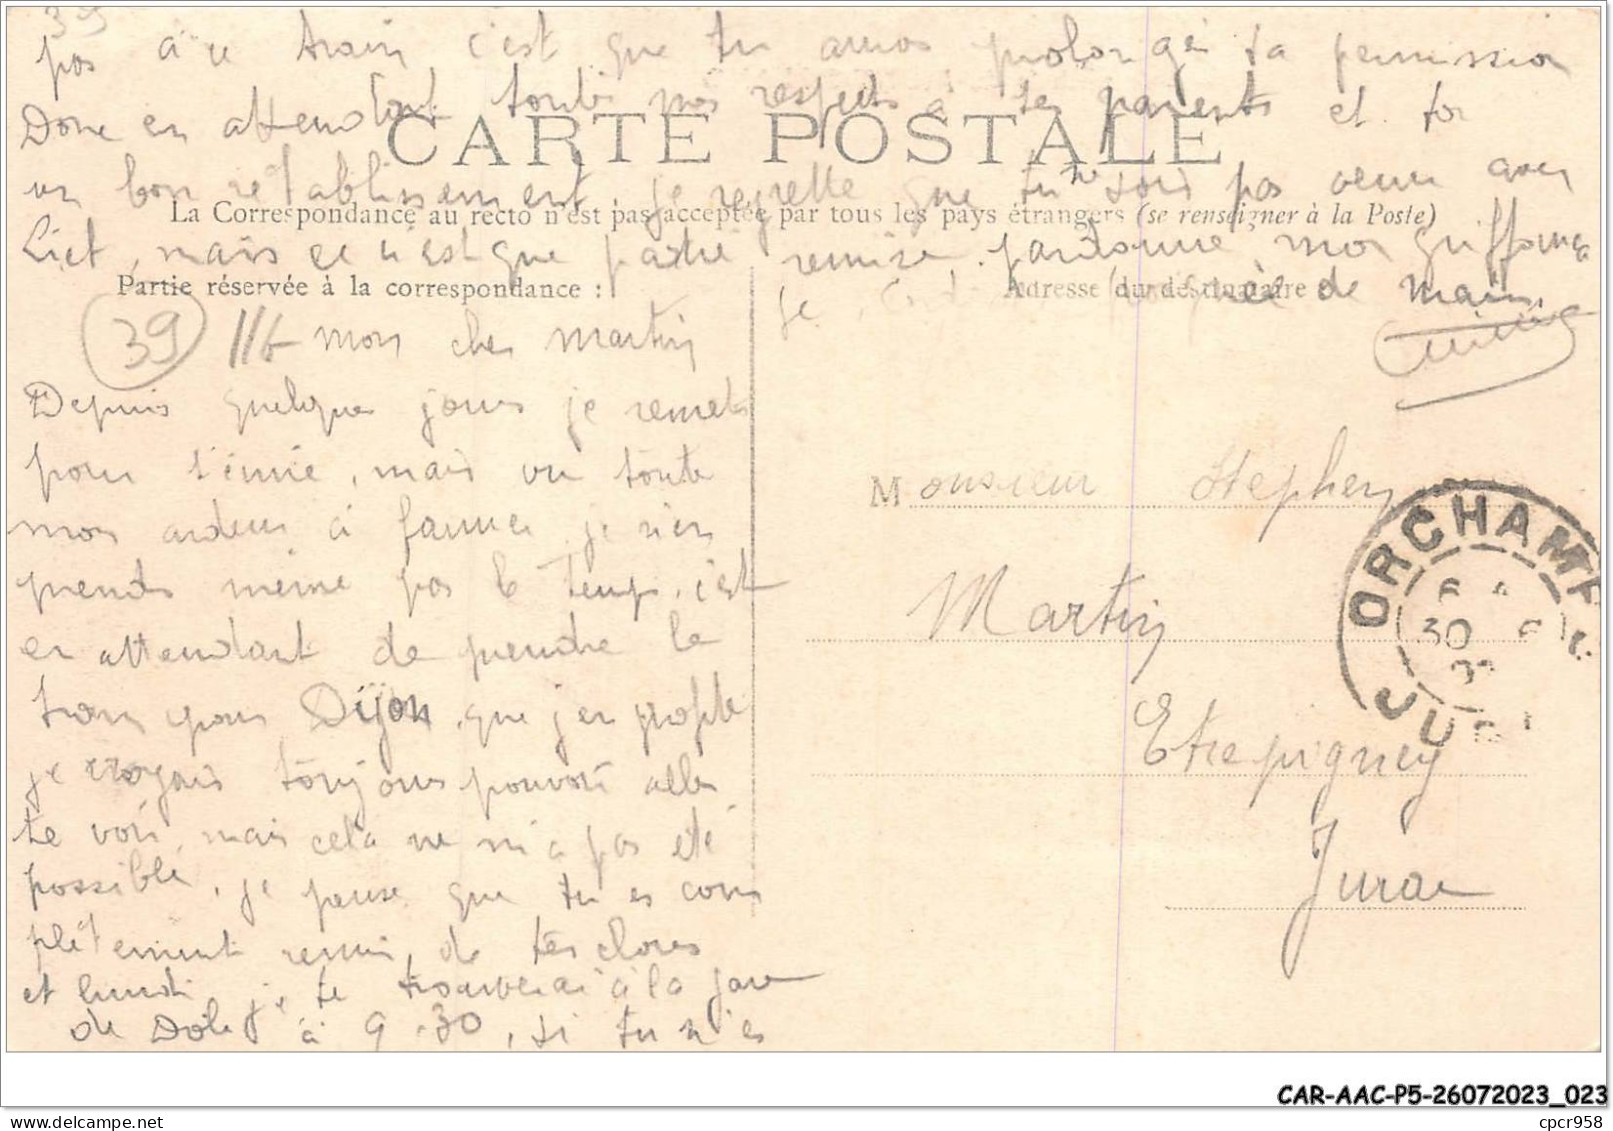 39
pas à ce train c'est que tu auras prolongé ta permission
Donc en attendant toutes nos respects à tes parents et toi
CARTE POSTALE
un bon rétablissement je regrette que tu ne sois pas venu avec
La Correspondance au recto n'est pas acceptée par tous les pays étrangers (se renseigner à la Poste)
Liet, mais ce n'est que partie remise, pardonne mon griffonna
Partie réservée à la correspondance :
Adresse du destinataire
ge, de main
39 11f mon cher martin
Depuis quelques jours je remets
pour t'écrire, mais vu toute
mon ardeur à faner je n'en
prends même pas le temps, c'est
en attendant de prendre le
train pour Dijon que j'en profite
je croyais toujours pouvoir aller
te voir, mais cela ne m'a pas été
possible, je pense que tu es com
plètement remis, de tes clous
et lundi je te trouverai à la gare
de Dole à 9.30, si tu n'es
Monsieur Stephen
Martin
Etrepigney
Jura
ORCHAMPS
30
JURA
CAR-AAC-P5-26072023_023
cpcr958